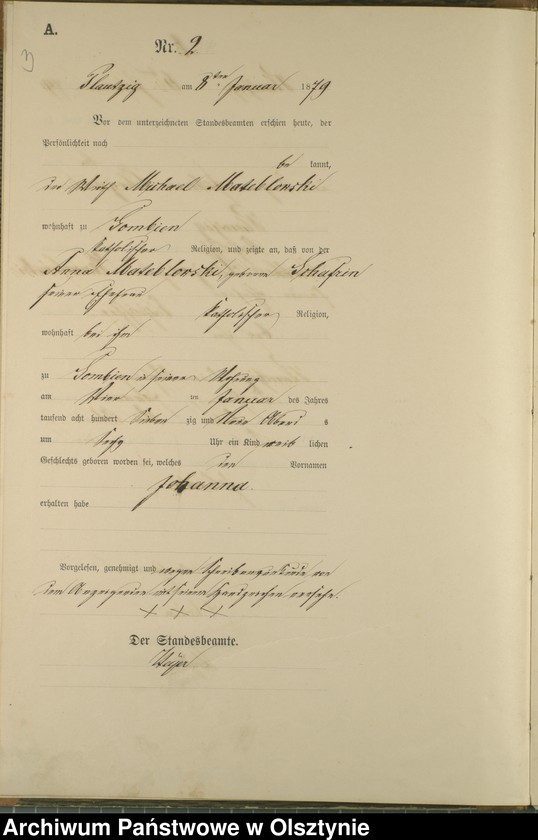 A.
Nr. 2
Plautzig am 8ten Januar 1879
Vor dem unterzeichneten Standesbeamten erschien heute, der
Persönlichkeit nach
be kannt,
der Wirth Michael Mateblowski
wohnhaft zu Gombien
katholischer Religion, und zeigte an, daß von der
Anna Mateblowski, geborene Schafrin
seiner Ehefrau
katholischer Religion,
wohnhaft bei ihm
zu Gombien in seiner Wohnung
am vier ten Januar des Jahres
tausend acht hundert sieben zig und neun Abend s
um sechs Uhr ein Kind weib lichen
Geschlechts geboren worden sei, welches den Vornamen
Johanna
erhalten habe
Vorgelesen, genehmigt und wegen Schreibensunkunde von
dem Anzeigenden mit seinem Handzeichen versehen.
+ + +
Der Standesbeamte.
Archiwum Państwowe w Olsztynie